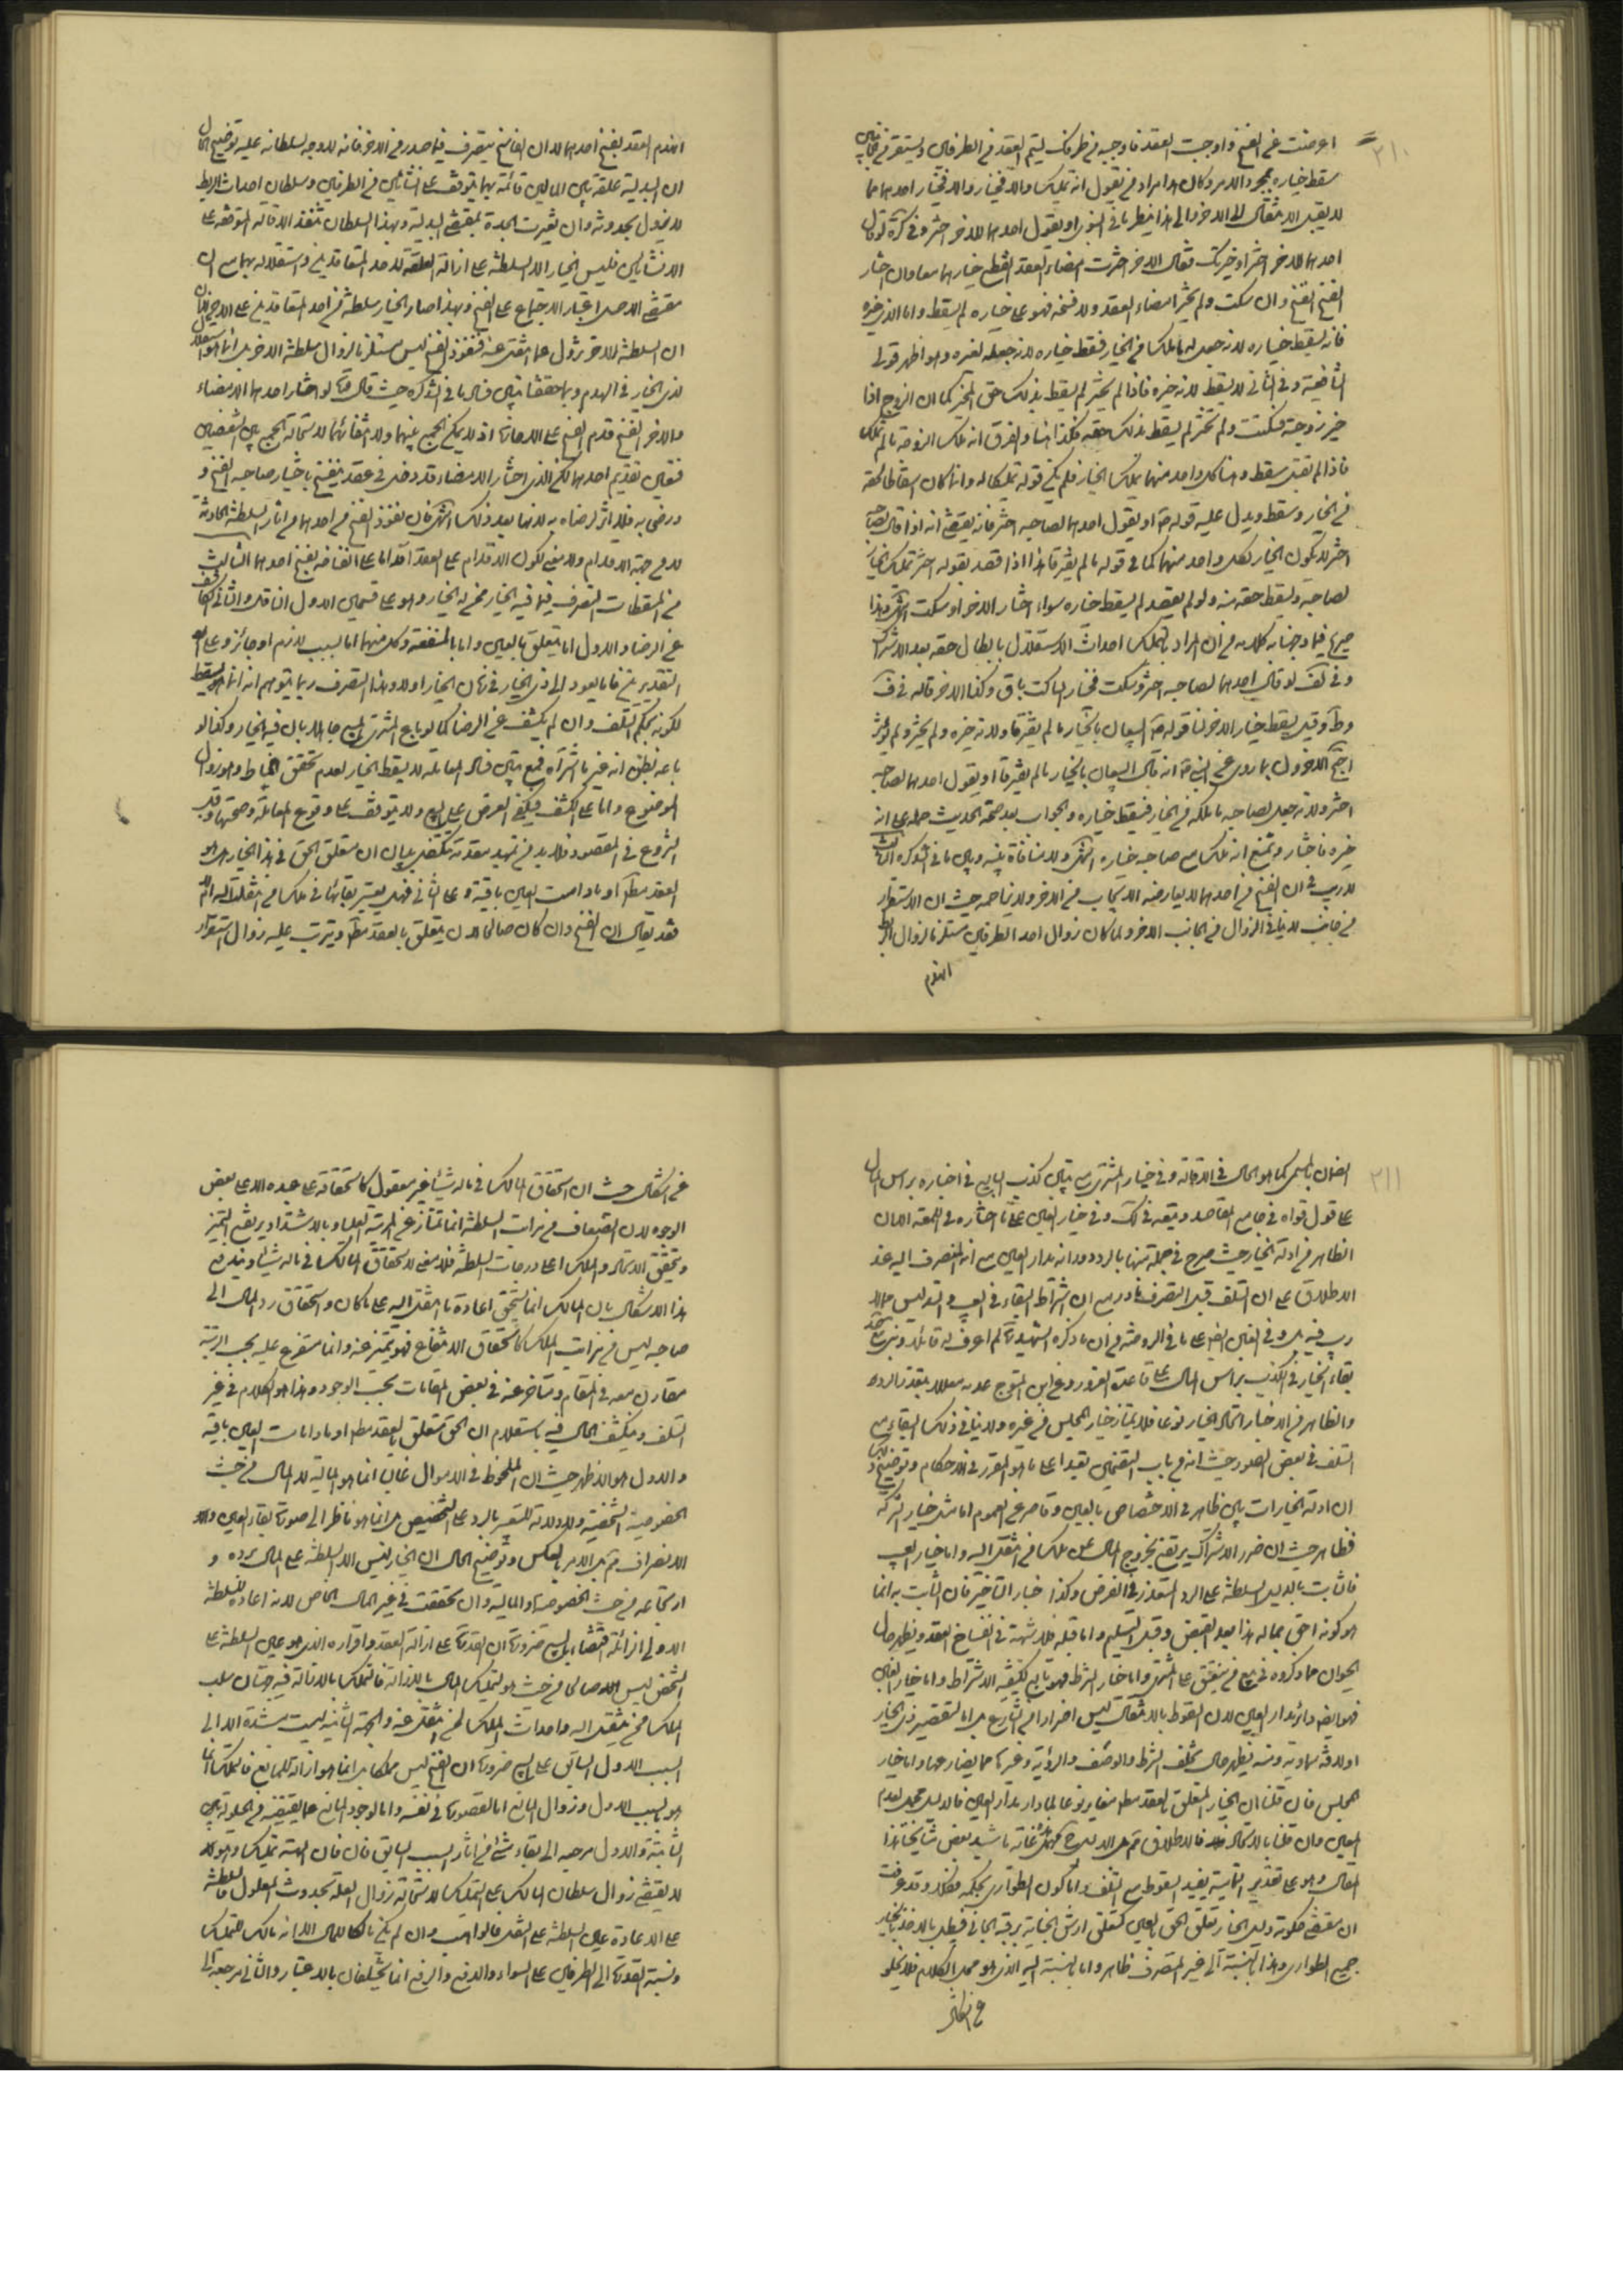 ٣١٠
اعرضت عن الفسخ واوجبت العقد فاوجبه من طرفك ليتم العقد من الطرفين ويستقر من جانبين
سقط خياره بمجرد الامر وكان هذا مراد من يقول انه تمليك والا فخيار والا فخيار احدهما مما
لا يقبل الانتقال الى الاخر والى هذا ينظر ما في النبوي او يقول احدهما للاخر اختر وفي كرة لو قال
احدهما للاخر اختر او خيرتك فقال الاخر اخترت امضاء العقد انقطع خيارهما معا وان اختار
الفسخ انفسخ وان سكت ولم يختر امضاء العقد ولا فسخه فهو على خياره لم يسقط واما الذي خيره
فانه يسقط خياره لانه جعل له ما ملك من الخيار فسقط خياره لانه جعله لغيره وهو اظهر قولي
الشافعية وفي الثاني لا يسقط لانه خيره فاذا لم يختر لم يسقط بذلك حق المخير كما ان الزوج اذا
خير زوجته فسكتت ولم تختر لم يسقط بذلك حقه فكذا هنا والفرق انه ملك الزوجة ما لم تملك
فاذا لم تقبل سقط وهنا كل واحد منهما يملك الخيار فلم يكن قوله تمليكا له وانما كان اسقاطا لحقه
من الخيار وسقط ويدل عليه قوله ع او يقول احدهما لصاحبه اختر فانه يقتضي انه اذا قال لصاحبه
اختر لا يكون الخيار لكل واحد منهما كما في قوله ما لم يفترقا هذا اذا قصد بقوله اختر تمليك الخيار
لصاحبه ويسقط حقه منه ولو لم يقصد لم يسقط خياره سواء اختار الاخر او سكت انتهى وهذا
صريح فيما وجهنا به كلامه من ان المراد بالتملك احداث الاستقلال بابطال حقه بعد الاشتراك
وفي لف لو قال احدهما لصاحبه اختر وسكت فخيار الساكت باق وكذا الاخر قاله في ف
وط وقيل يسقط خيار الاخر لنا قوله ع البيعان بالخيار ما لم يفترقا ولانه خيره ولم يختر ولم يؤثر
احتج الاخرون بما روي عن النبي ص انه قال البيعان بالخيار ما لم يفترقا او يقول احدهما لصاحبه
اختر ولانه جعل لصاحبه ما ملكه من الخيار فيسقط خياره والجواب بعد صحة الحديث حمله على انه
خيره فاختار ونمنع انه ملك مع صاحبه خياره انتهى ولا منافاة بينه وبين ما في التذكره الثالث
لا ريب في ان الفسخ من احدهما لا يعارضه الايجاب من الاخر ولا يزاحمه حيث ان الاستقرار
من جانب لا ينافي الزوال من الجانب الاخر ولما كان زوال احد الطرفين مستلزما لزوال الربط
انهدم
انهدم العقد بفسخ احدهما لا ان الفاسخ يتصرف فيما صدر من الاخر فانه لا وجه لسلطانه عليه توضيح الحال
ان البدلية علقة بين المالين قائمة بهما يتوقف على انشائين من الطرفين وسلطان احداث الربط
لا يزول بحدوثه وان تغيرت الجدة بمقتضى البدلية وبهذا السلطان تنفذ الاقالة المتوقفة على
الانشائين فليس الخيار الا السلطنة على ازالة العلقة لاحد المتعاقدين واستقلاله بها مع ان
مقتضى الاصل اعتبار الاجتماع على الفسخ وبهذا صار الخيار سلطنة من احد المتعاقدين على الاخر
ان السلطنة للاخر تزول عما انتقل عنه فنفوذ الفسخ ليس مستلزما لزوال سلطنة الاخر بل انما هو استقلال
لذي الخيار في الهدم وبما حققنا تبين فساد ما في التذكره حيث قال فلو اختار احدهما الامضاء
والاخر الفسخ قدم الفسخ على الاجازة اذ لا يمكن الجمع بينهما ولا انتفائهما لاستحالة الجمع بين النقيضين
فتعين تقديم احدهما لكن الذي اختار الامضاء قد دخل في عقد ينفسخ باختيار صاحبه الفسخ و
ورضي به فلا اثر لرضاه به لازما بعد ذلك انتهى فان نفوذ الفسخ من احدهما من اثار السلطنة الحادثة
لا من جهة الاقدام ولا معنى لكون الاقدام على العقد اقداما على انفساخه بفسخ احدهما الثالث
من المسقطات التصرف فيما فيه الخيار ممن له الخيار وهو على قسمين الاول الناقل والثاني الكاشف
عن الرضا والاول اما يتعلق بالعين واما بالمنفعة وكل منهما اما بسبب لازم او جائز وعلى
التقديرين فاما يعود الى ذي الخيار في زمان الخيار اولا وهذا التصرف ربما يتوهم انه انما هو يسقط
لكونه بحكم التلف وان لم يكشف عن الرضا كما لو باع المشتري المبيع جاهلا بان فيه الخيار وكذا لو
باعه بظن انه غير ما اشتراه فمع تبين فساد المعاملة لا يسقط الخيار لعدم تحقق المناط وهو زوال
الموضوع واما على الكشف فيكفي العرض على البيع ولا يتوقف على وقوع المعاملة وصحتها وقبل
الشروع في المقصود فلا بد من تمهيد مقدمة تتكفل ببيان ان متعلق الحق في هذا الخيار هل هو
العقد مطلقا او ما دامت العين باقية وعلى الثاني فهل يعتبر بقائها في ملك من انتقلت اليه ام لا
فقد يقال ان الفسخ وان كان صالحا لان يتعلق بالعقد مطلقا ويترتب عليه زوال استقرار
٣١١
الضمان بالمسمى كما هو الحال في الاقالة وفي خيار المشتري مع تبين كذب البايع في اخباره براس المال
على قول قواه في جامع المقاصد وتبعه في لك وفي خيار الغبن على ما اختاره في اللمعة الا ان
الظاهر من ادلة الخيار حيث صرح في جملة منها بالرد دورانه مدار العين مع انه المنصرف اليه عند
الاطلاق على ان التلف قبل التصرف نادر مع ان اشتراط البقاء في العيب والتدليس مما لا
ريب فيه بل وفي الغبن ايضا على ما في الروضة من ان ما ذكره الشهيد لم اعرف له قائلا
بقاء الخيار في الكذب براس المال على قاعدة الغرور وعن ابن المتوج عدمه معللا بتعذر الرد
والظاهر من الاخبار اتحاد الخيار نوعا فلا يمتاز خيار المجلس من غيره ولا ينافي ذلك البقاء مع
التلف في بعض الصور حيث انه من باب التضمين تعبدا على ما هو المقرر في الاحكام وتوضيح ذلك
ان ادلة الخيارات بين ظاهر في الاختصاص بالعين وقاصر عن العموم اما مثل خيار الشركة
فظاهر حيث ان ضرر الاشتراك يرتفع بخروج المال عن ملك من انتقل اليه واما خيار العيب
فالثابت بالدليل السلطنة على الرد المتعذر في الفرض وكذا خيار التاخير فان الثابت به انما
هو كونه احق بماله هذا بعد القبض وقبل التسليم واما قبله فلا شبهة في انفساخ العقد ويظهر حال
الحيوان مما ذكروه في بيع من ينعتق على المشتري واما خيار الشرط فهو تابع لكيفية الاشتراط واما خيار الغبن
فهو ايضا دائر مدار العين لان السقوط بالانتقال ليس اضرارا من الشارع بل اما لتقصير ذي الخيار
او لافة سماوية ومنه يظهر حال تخلف الشرط والوصف والرؤية وغيرها مما يضار بها واما خيار
المجلس فان قلنا ان الخيار المتعلق بالعقد مطلقا مغاير نوعا لما دار مدار العين فالدليل مجمل بعدم
العين وان قلنا بالاتحاد فالاطلاق
القائل وهو على تقدير التمامية يفيد السقوط مع التلف واما كون الطواري بحكمه فكلا وقد عرفت
ان مقتضى حكومة دليل الخيار تعلق الحق بالعين كتعلق ارش الجناية برقبة الجاني فيبطل بالاخذ بالخيار
جميع الطواري وهذا بالنسبة الى غير المتصرف ظاهر واما بالنسبة اليه الذي هو محل الكلام فلا يخلو
عن اشكال
عن اشكال حيث ان استحقاق المالك في ماله شيئا غير معقول كاستحقاقه على عبده الا على بعض
الوجوه لان الضعاف من مراتب السلطنة انما تمتاز عن المرتبة العليا وبالاشتداد يرتفع التميز
ويتحقق الاتحاد والملك اعلى درجات السلطنة فلا معنى لاستحقاق المالك في ماله شيئا ويندفع
هذا الاشكال بان المالك انما يستحق اعادة ما انتقل اليه على ما كان واستحقاق رد المال الى
صاحبه ليس من مراتب الملك كاستحقاق الانتفاع فهو يتميز عنه وانما متفرع عليه بحسب الرتبة
مقارن معه في المقام ومتاخر عنه في بعض المقامات بحسب الوجود وهذا هو الكلام في غير
التلف وينكشف الحال فيه باستعلام ان الحق متعلق بالعقد مطلقا او ما دامت العين باقية
والاول هو الاظهر حيث ان الملحوظ في الاموال غالبا انما هو المالية لا المال من حيث
الخصوصية الشخصية ولا دلالة للتعبير بالرد على التخصيص بل انما هو ناظر الى صورة بقاء العين
الانصراف ثم بل الامر بالعكس وتوضيح الحال ان الخيار ليس الا السلطنة على المال برده و
ارتجاعه من حيث الخصوصية او المالية وان تحققت في غير المال الخاص لانه اعادة للسلطنة
الاولى الزائلة بالبيع ضرورة ان القدرة على ازالة العقد واقراره الذي هو عين السلطنة على
الشخص ليس الا صالحا من حيث هو لتمليك المال بالازالة فالتملك بالاقالة فيه جهتان سلب
الملك ممن انتقل اليه واحداث الملك لمن انتقل عنه والجهة الثانية ليست مستندة الا الى
السبب الاول السابق على البيع ضرورة ان الفسخ ليس مملكا بل انما هو ازالة للمانع فالتملك انما
هو بالسبب الاول وزوال المانع اما لقصوره في نفسه واما لوجود المانع عما يقتضيه من الحيلولة بين
الثانية والاول مرجعه الى بقاء شيء من اثار السبب السابق فان الهبة تمليك وهو لا
لا يقتضي زوال سلطان المالك على التمليك لاستحالة زوال العلة بحدوث المعلول فالسلطنة
على الاعادة عين السلطنة على النقل فالواهب وان لم يكن مالكا للمال الا انه مالك للتملك
ونسبة القدرة الى الطرفين على السواء والدفع والرفع انما يختلفان بالاعتبار والثاني مرجعه الى